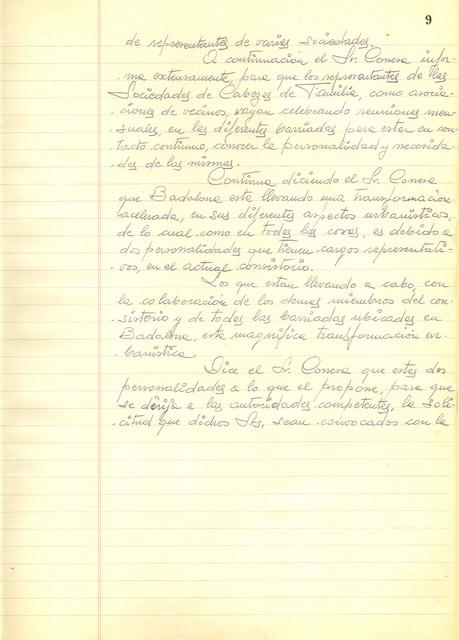 9
de representantes de varias sociedades.
A continuación el Sr. Conesa infor-
ma extensamente, para que los representantes de las
Sociedades de Cabezas de Familia, como asocia-
ciones de vecinos, vayan celebrando reuniones men-
suales, en las diferentes barriadas para estar en con-
tacto continuo, conocer la personalidad y necesida-
des de las mismas.
Continua diciendo el Sr. Conesa
que Badalona esta llevando una transformación
acelerada, en sus diferentes aspectos urbanisticos,
de lo cual como en todas las cosas, es debido a
dos personalidades que tienen cargos representati-
vos, en el actual consistorio.
Los que estan llevando a cabo, con
la colaboración de los demas miembros del con-
sistorio y de todas las barriadas ubicadas en
Badalona, esta magnifica transformación ur-
banistica.
Dice el Sr. Conesa que estas dos
personalidades a lo que el propone, para que
se dirija a las autoridades competentes, la soli-
citud que dichos Srs, sean convocados con la